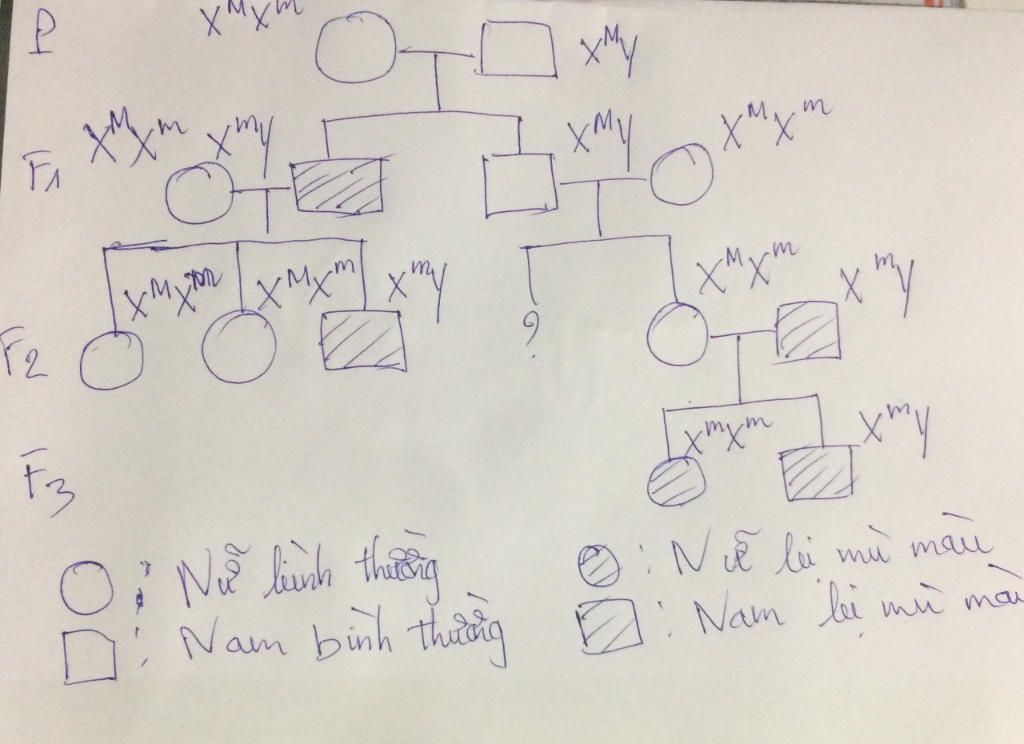 P
X^M X^m
X^M Y
F1
X^M X^m
X^m Y
X^M Y
X^M X^m
F2
X^M X^m
X^M X^m
X^m Y
?
X^M X^m
X^m Y
F3
X^m X^m
X^m Y
: Nữ bình thường
: Nam bình thường
: Nữ bị mù màu
: Nam bị mù màu